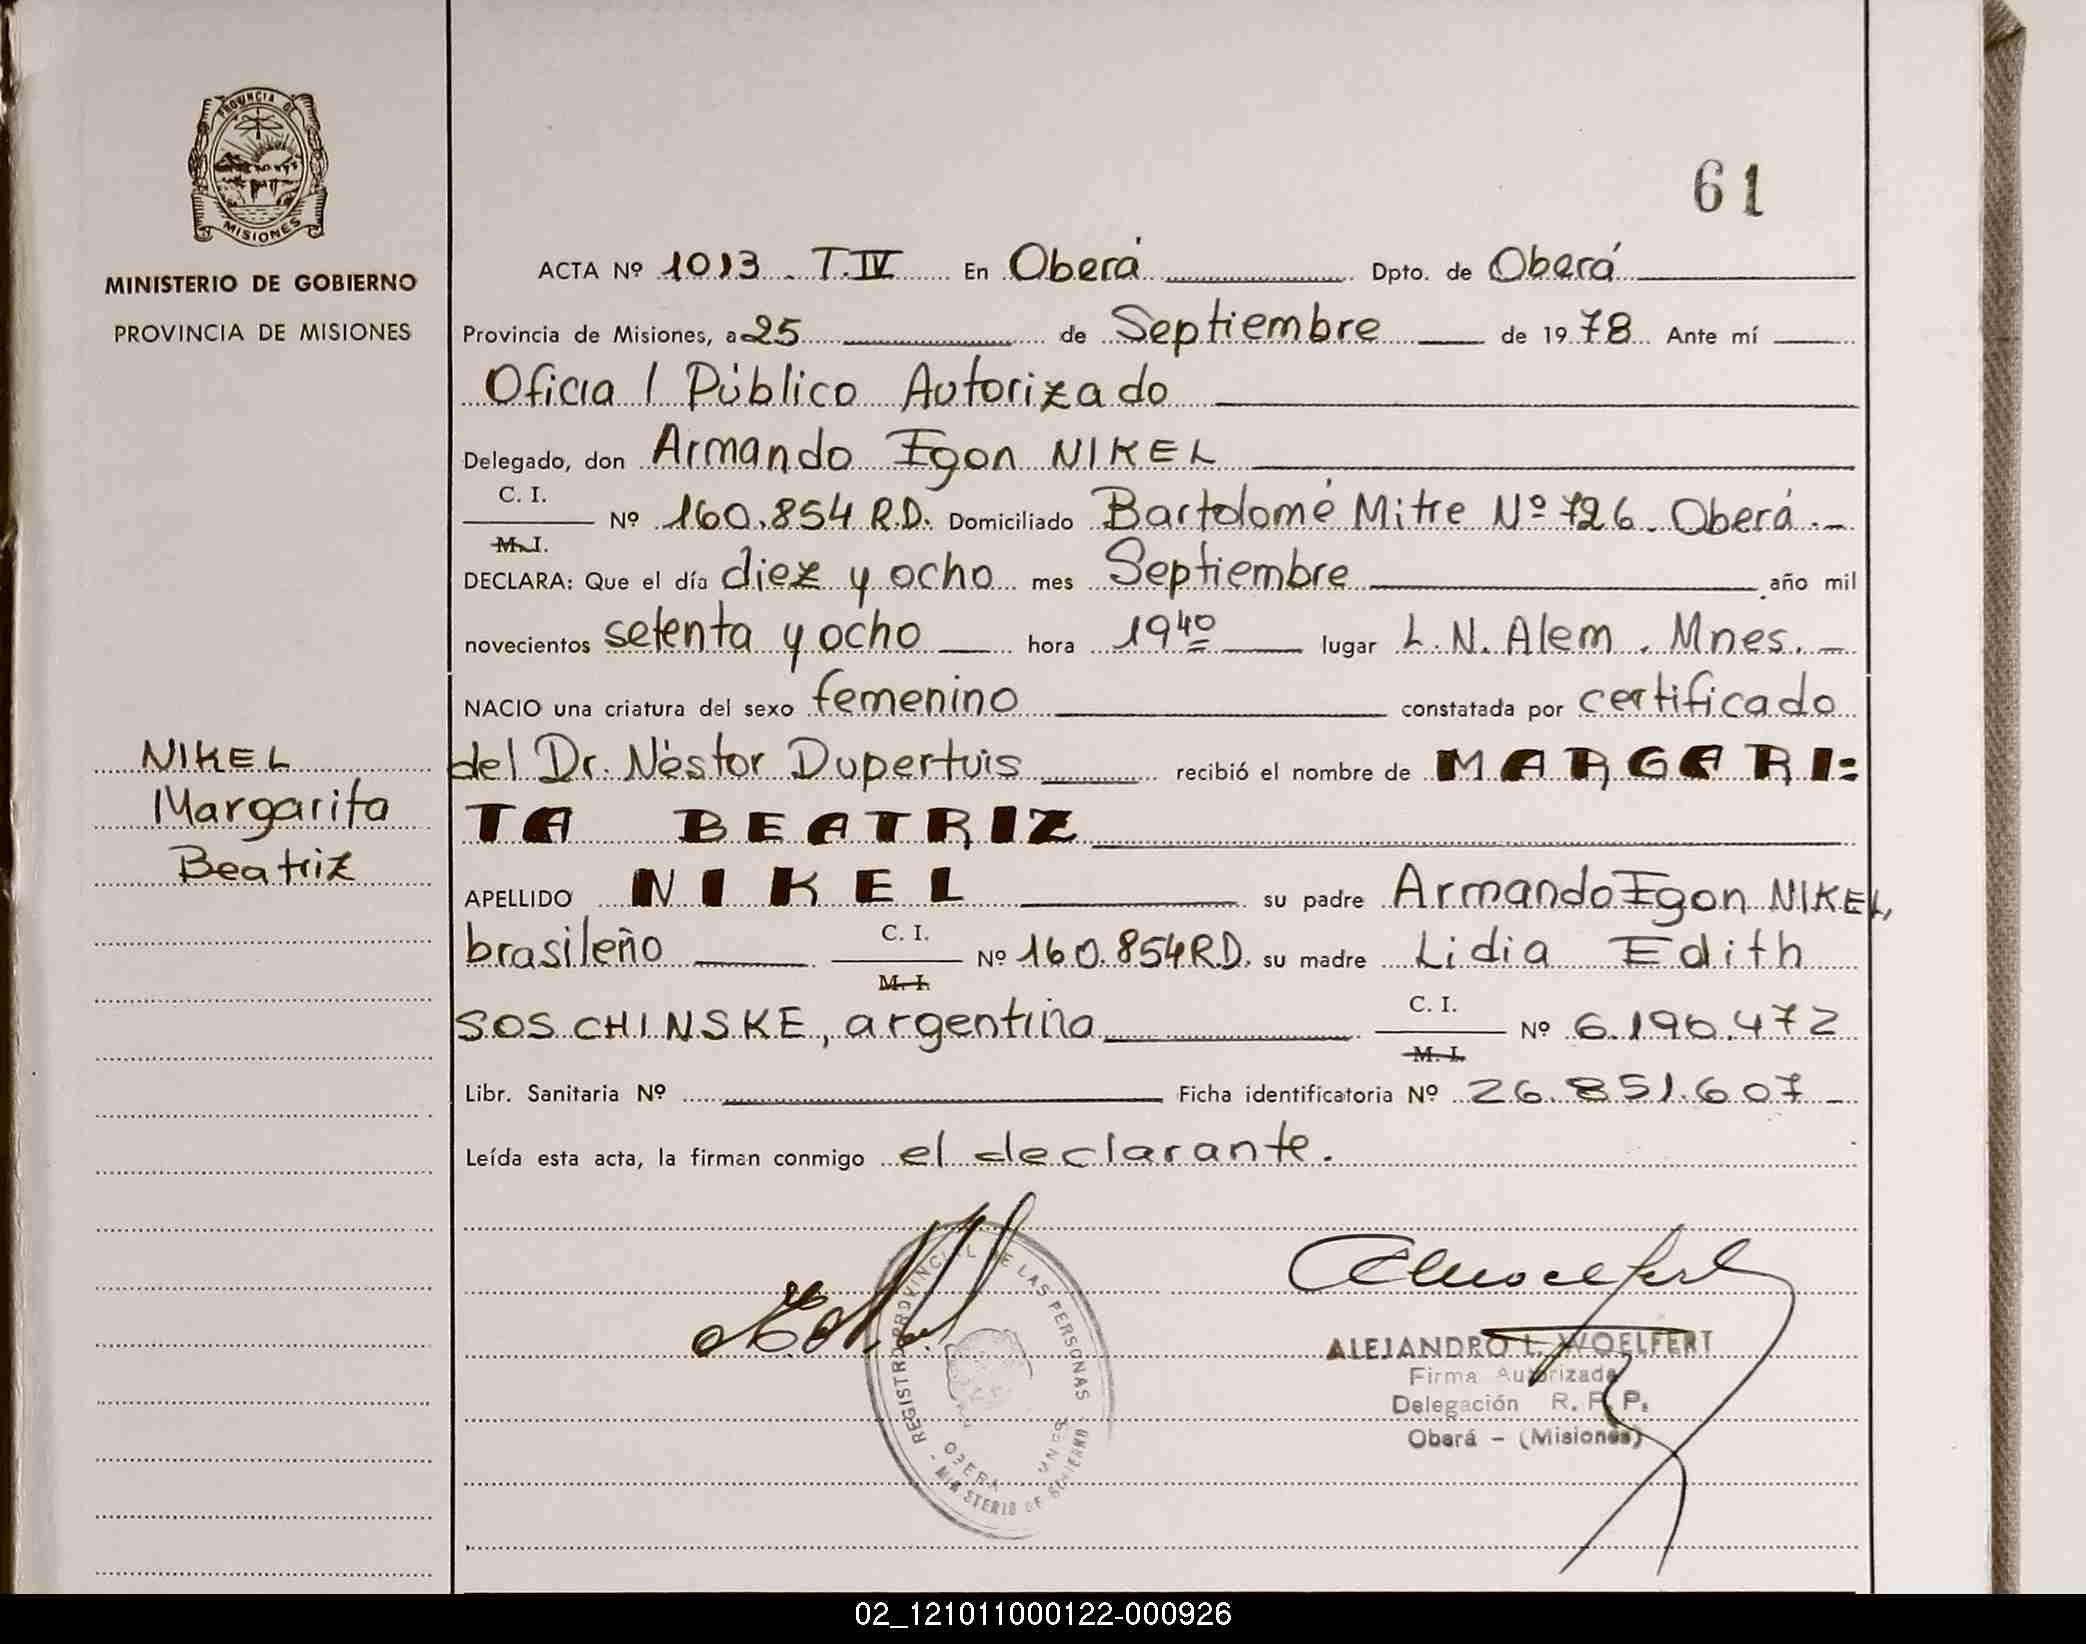 PROVINCIA DE
MISIONES
MINISTERIO DE GOBIERNO
PROVINCIA DE MISIONES
61
ACTA Nº 1013 . T.IV En Oberá Dpto. de Oberá
Provincia de Misiones, a 25 de Septiembre de 1978 Ante mí
Oficial Público Autorizado
Delegado, don Armando Egon NIKEL
C. I.
Nº 160.854 R.D. Domiciliado Bartolomé Mitre Nº 726. Oberá.-
M. I.
DECLARA: Que el día diez y ocho mes Septiembre año mil
novecientos setenta y ocho hora 19 40 lugar L.N. Alem . Mnes. -
NACIO una criatura del sexo femenino constatada por certificado
del Dr. Néstor Dupertuis recibió el nombre de MARGARI=
TA BEATRIZ
APELLIDO NIKEL su padre Armando Egon NIKEL,
brasileño C. I. Nº 160.854 R.D. su madre Lidia Edith
M. I.
SOSCHINSKE, argentina C. I. Nº 6.196.472
M. I.
Libr. Sanitaria Nº Ficha identificatoria Nº 26.851.607 -
Leída esta acta, la firman conmigo el declarante.
NIKEL
Margarita
Beatriz
REGISTRO PROVINCIAL DE LAS PERSONAS
OBERA MNES
MINISTERIO DE GOBIERNO
ALEJANDRO L. WOELFERT
Firma Autorizada
Delegación R. P. P.
Oberá - (Misiones)
02_121011000122-000926